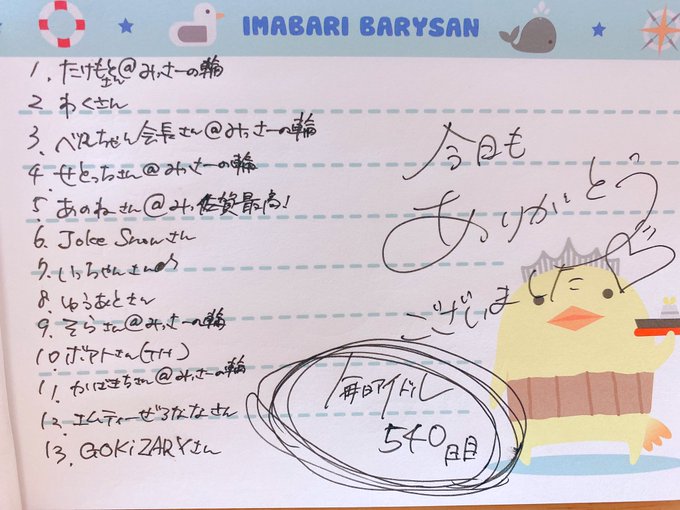 IMABARI BARYSAN
1. たけもとさん@みっさーの輪
2 わくさん
3. べえちゃん会長さん@みっさーの輪
4. せとっちさん@みっさーの輪
5 あのねさん@みっ佐賀最高!
6. Joke Snowさん
7. いっちゃんさん♪
8. ゆうあとさん
9. そらさん@みっさーの輪
10. ボアトさん(TH)
11. かばきちさん@みっさーの輪
12. エムティーぜろななさん
13. GOKiZARYさん
今日も
ありがとう
ございました
毎日アイドル
540日目